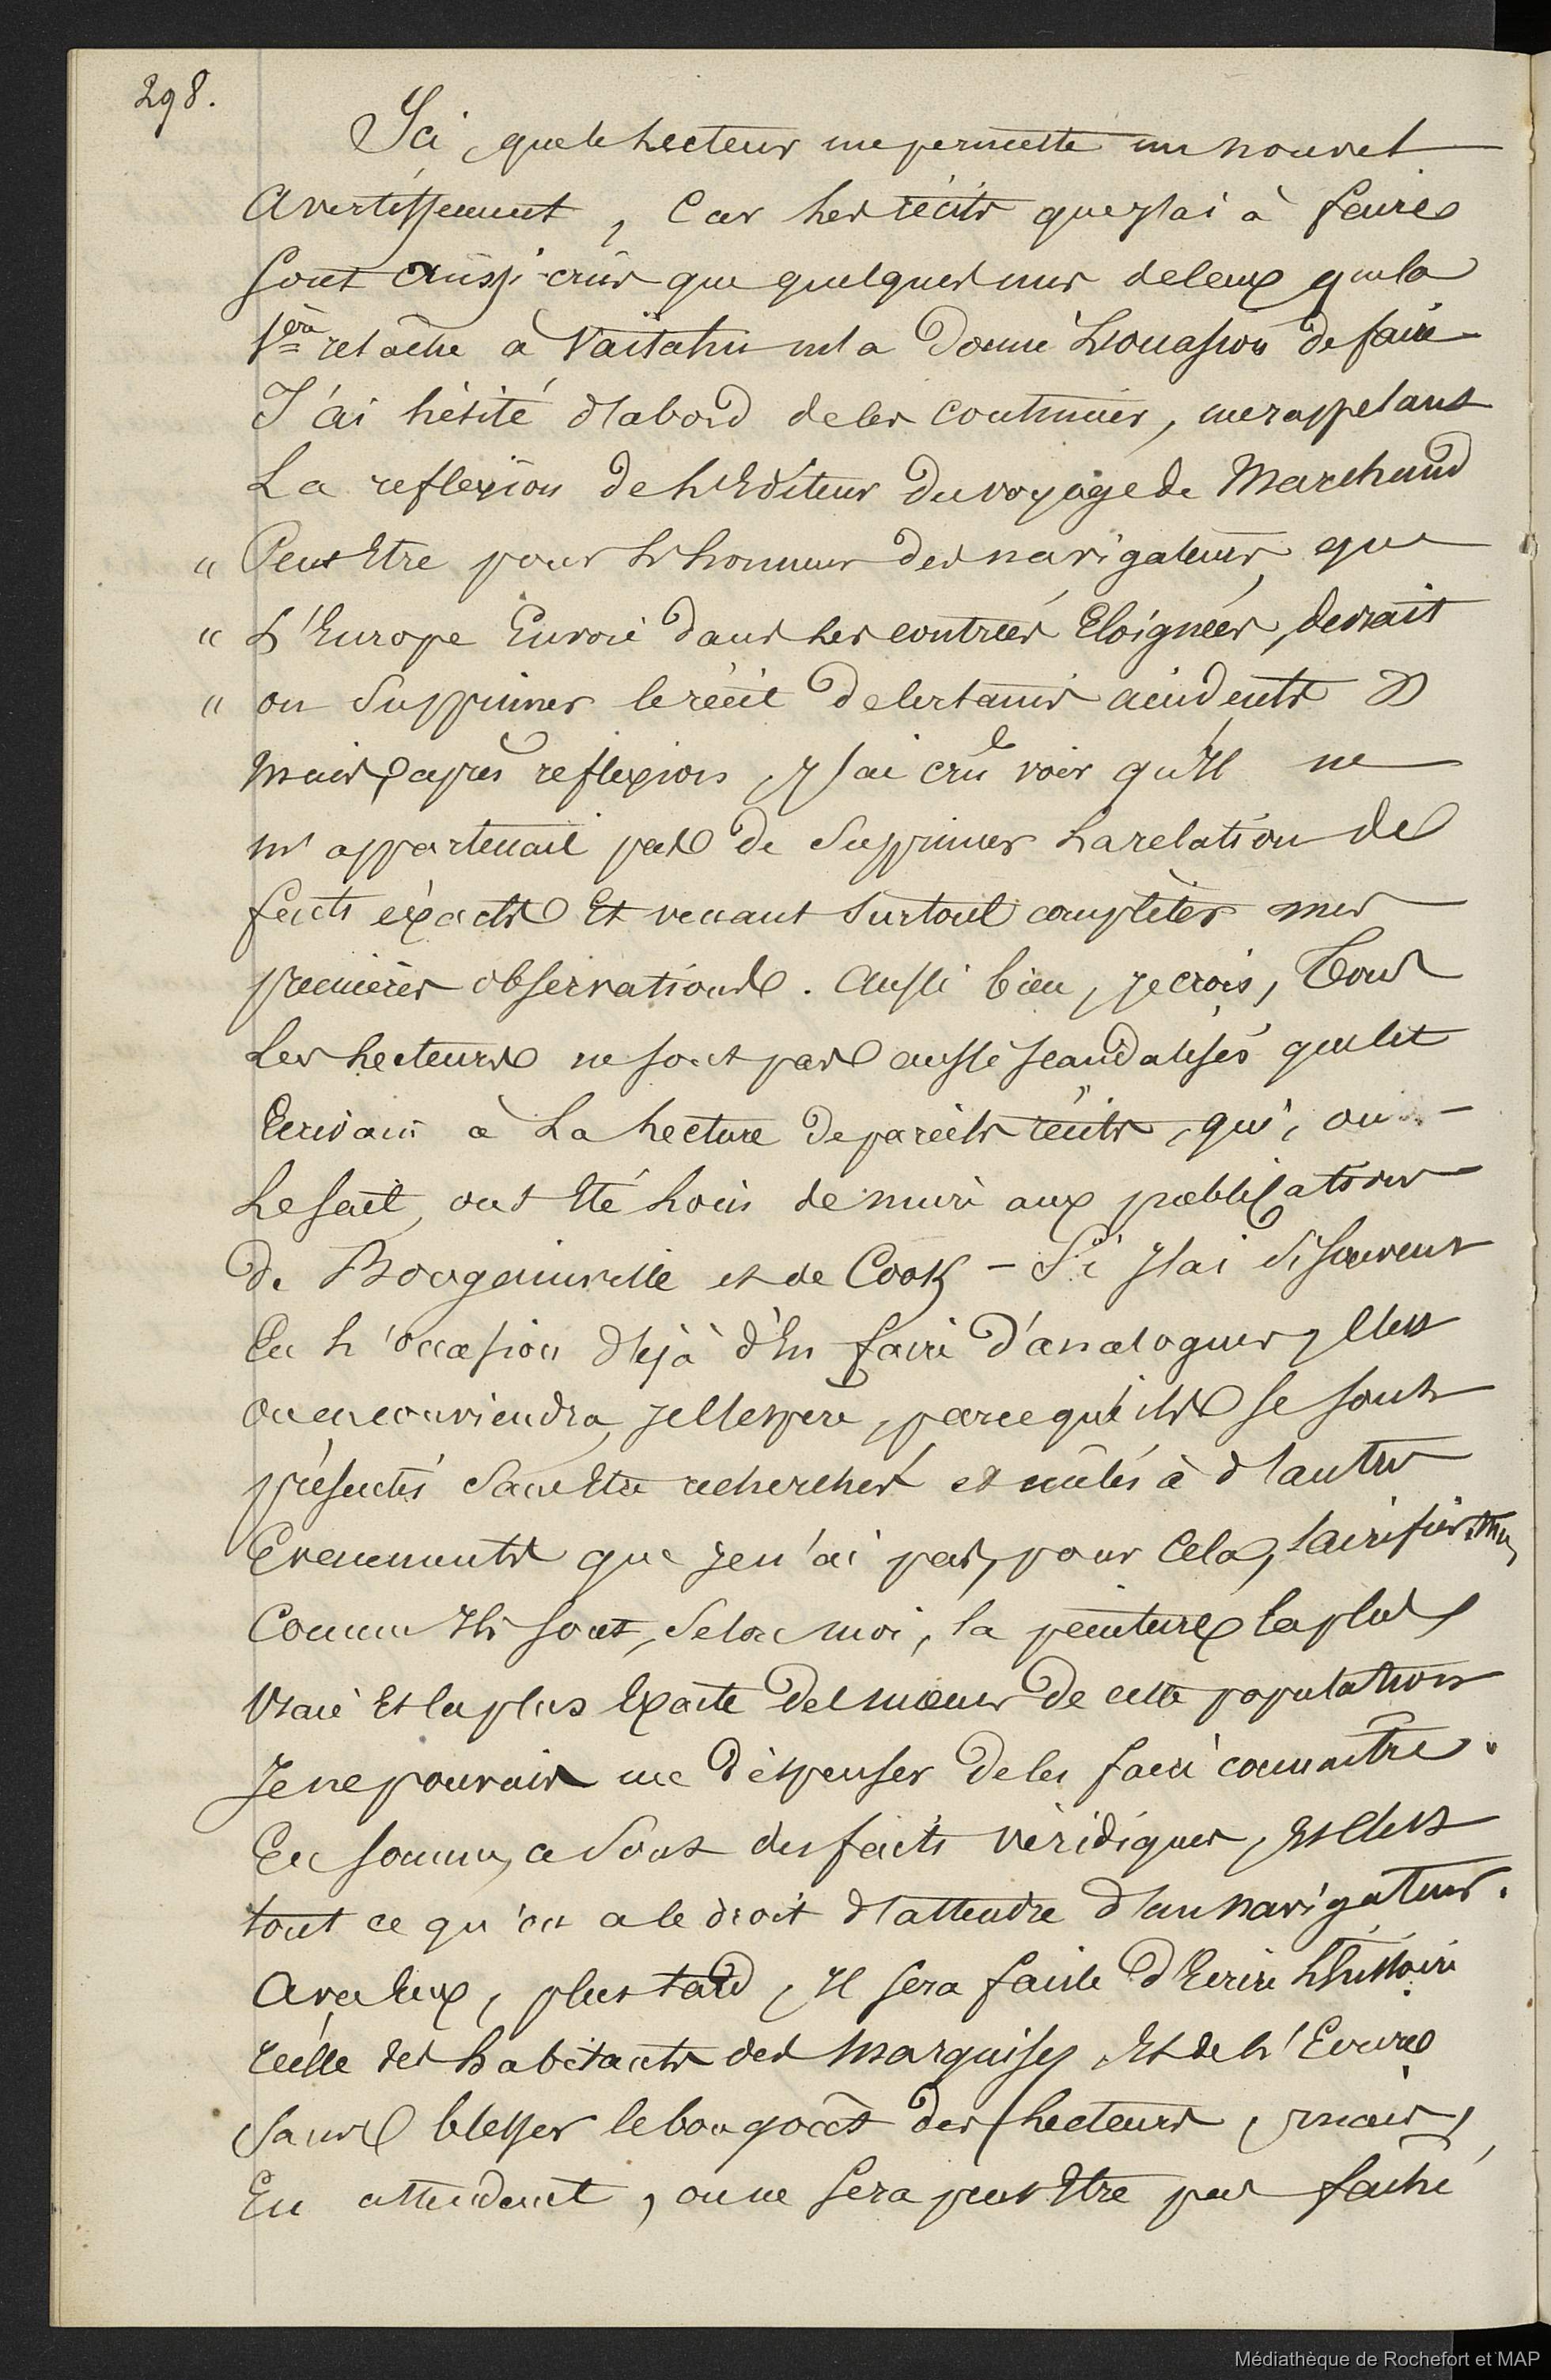 298.
Ici, que le Lecteur me permette un nouvel
avertissement, Car les récits que j'ai à faire
sont aussi crûs que quelques uns de Ceux que la
1ère relâche à Vaitahu m'a donné L'occasion de faire
J'ai hésité d'abord de les continuer, me rappelant
La reflexion de L'Editeur du voyage de Marchand
" Peut Etre pour L'honneur des navigateurs que
" L'Europe Envoie dans les contrées Eloignées, devrait
" on Supprimer le récit de Certains accidents »
Mais, après reflexions, J'ai crû voir qu'Il ne
m'appartenait pas de Supprimer La relation de
faits éxacts Et venant surtout complèter mes
premières observations. Aussi bien, je crois, Tous
Les Lecteurs ne sont pas aussi scandalisés que cet
Ecrivain à La Lecture de pareils récits, qui, on
Le sait, ont Eté Loin de nuire aux publications
de Bougainville et de Cook – Si J'ai si souvent
Eu L'occasion déjà d'En faire d'analogues, C'est
on en conviendra, je l'Espère, parce qu'ils se sont
présentés sans Etre recherchés et mêlés à d'autres
Evenements que je n'ai pas, pour Cela,
Comme Ils sont, Selon moi, la peinture la plus
Vraie Et la plus Exacte des mœurs de cette population
Je ne pouvais me dispenser de les faire connaître.
En somme, ce sont des faits véridiques, Et C'est
tout ce qu'on a le droit d'attendre d'un navigateur.
Avec Eux, plus tard, Il sera facile d'Ecrire L'histoire
réelle des habitants des Marquises Et de L'Ecrire
Sans blesser le bon goût des Lecteurs, mais,
En attendant, on ne sera peut Etre pas faché
Médiathèque de Rochefort et MAP